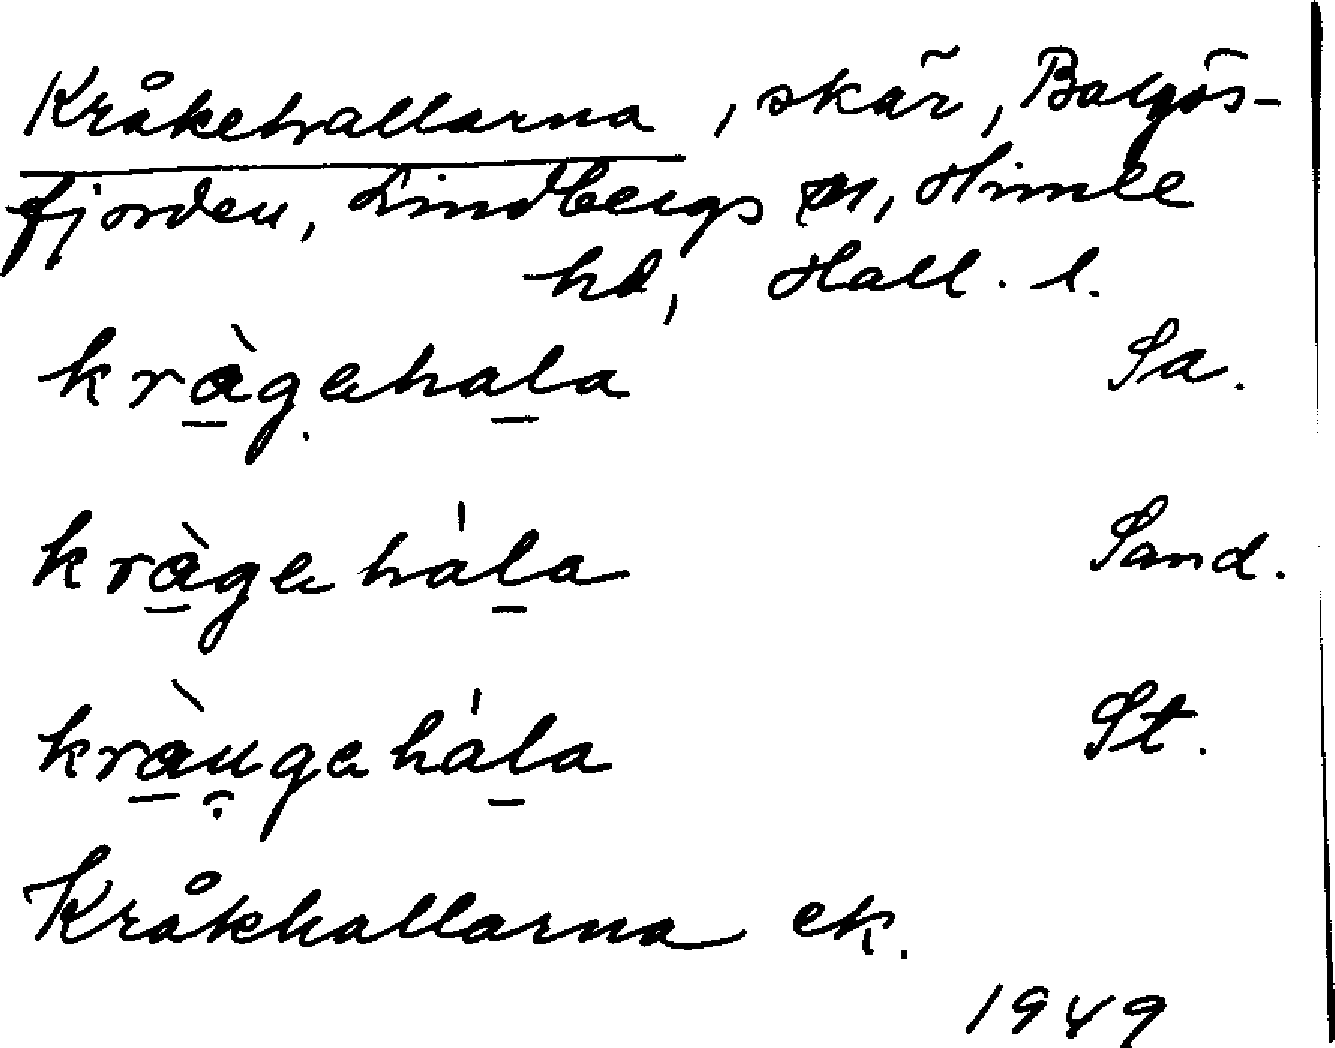 Kråkehallarna, skär, Balgös-
fjorden, Lindbergs sn, Himle
hd, Hall. l.
kràgahala Sa.
kràgahàla Sand.
kràu̯gahàla St.
Kråkhallarna ek.
1949